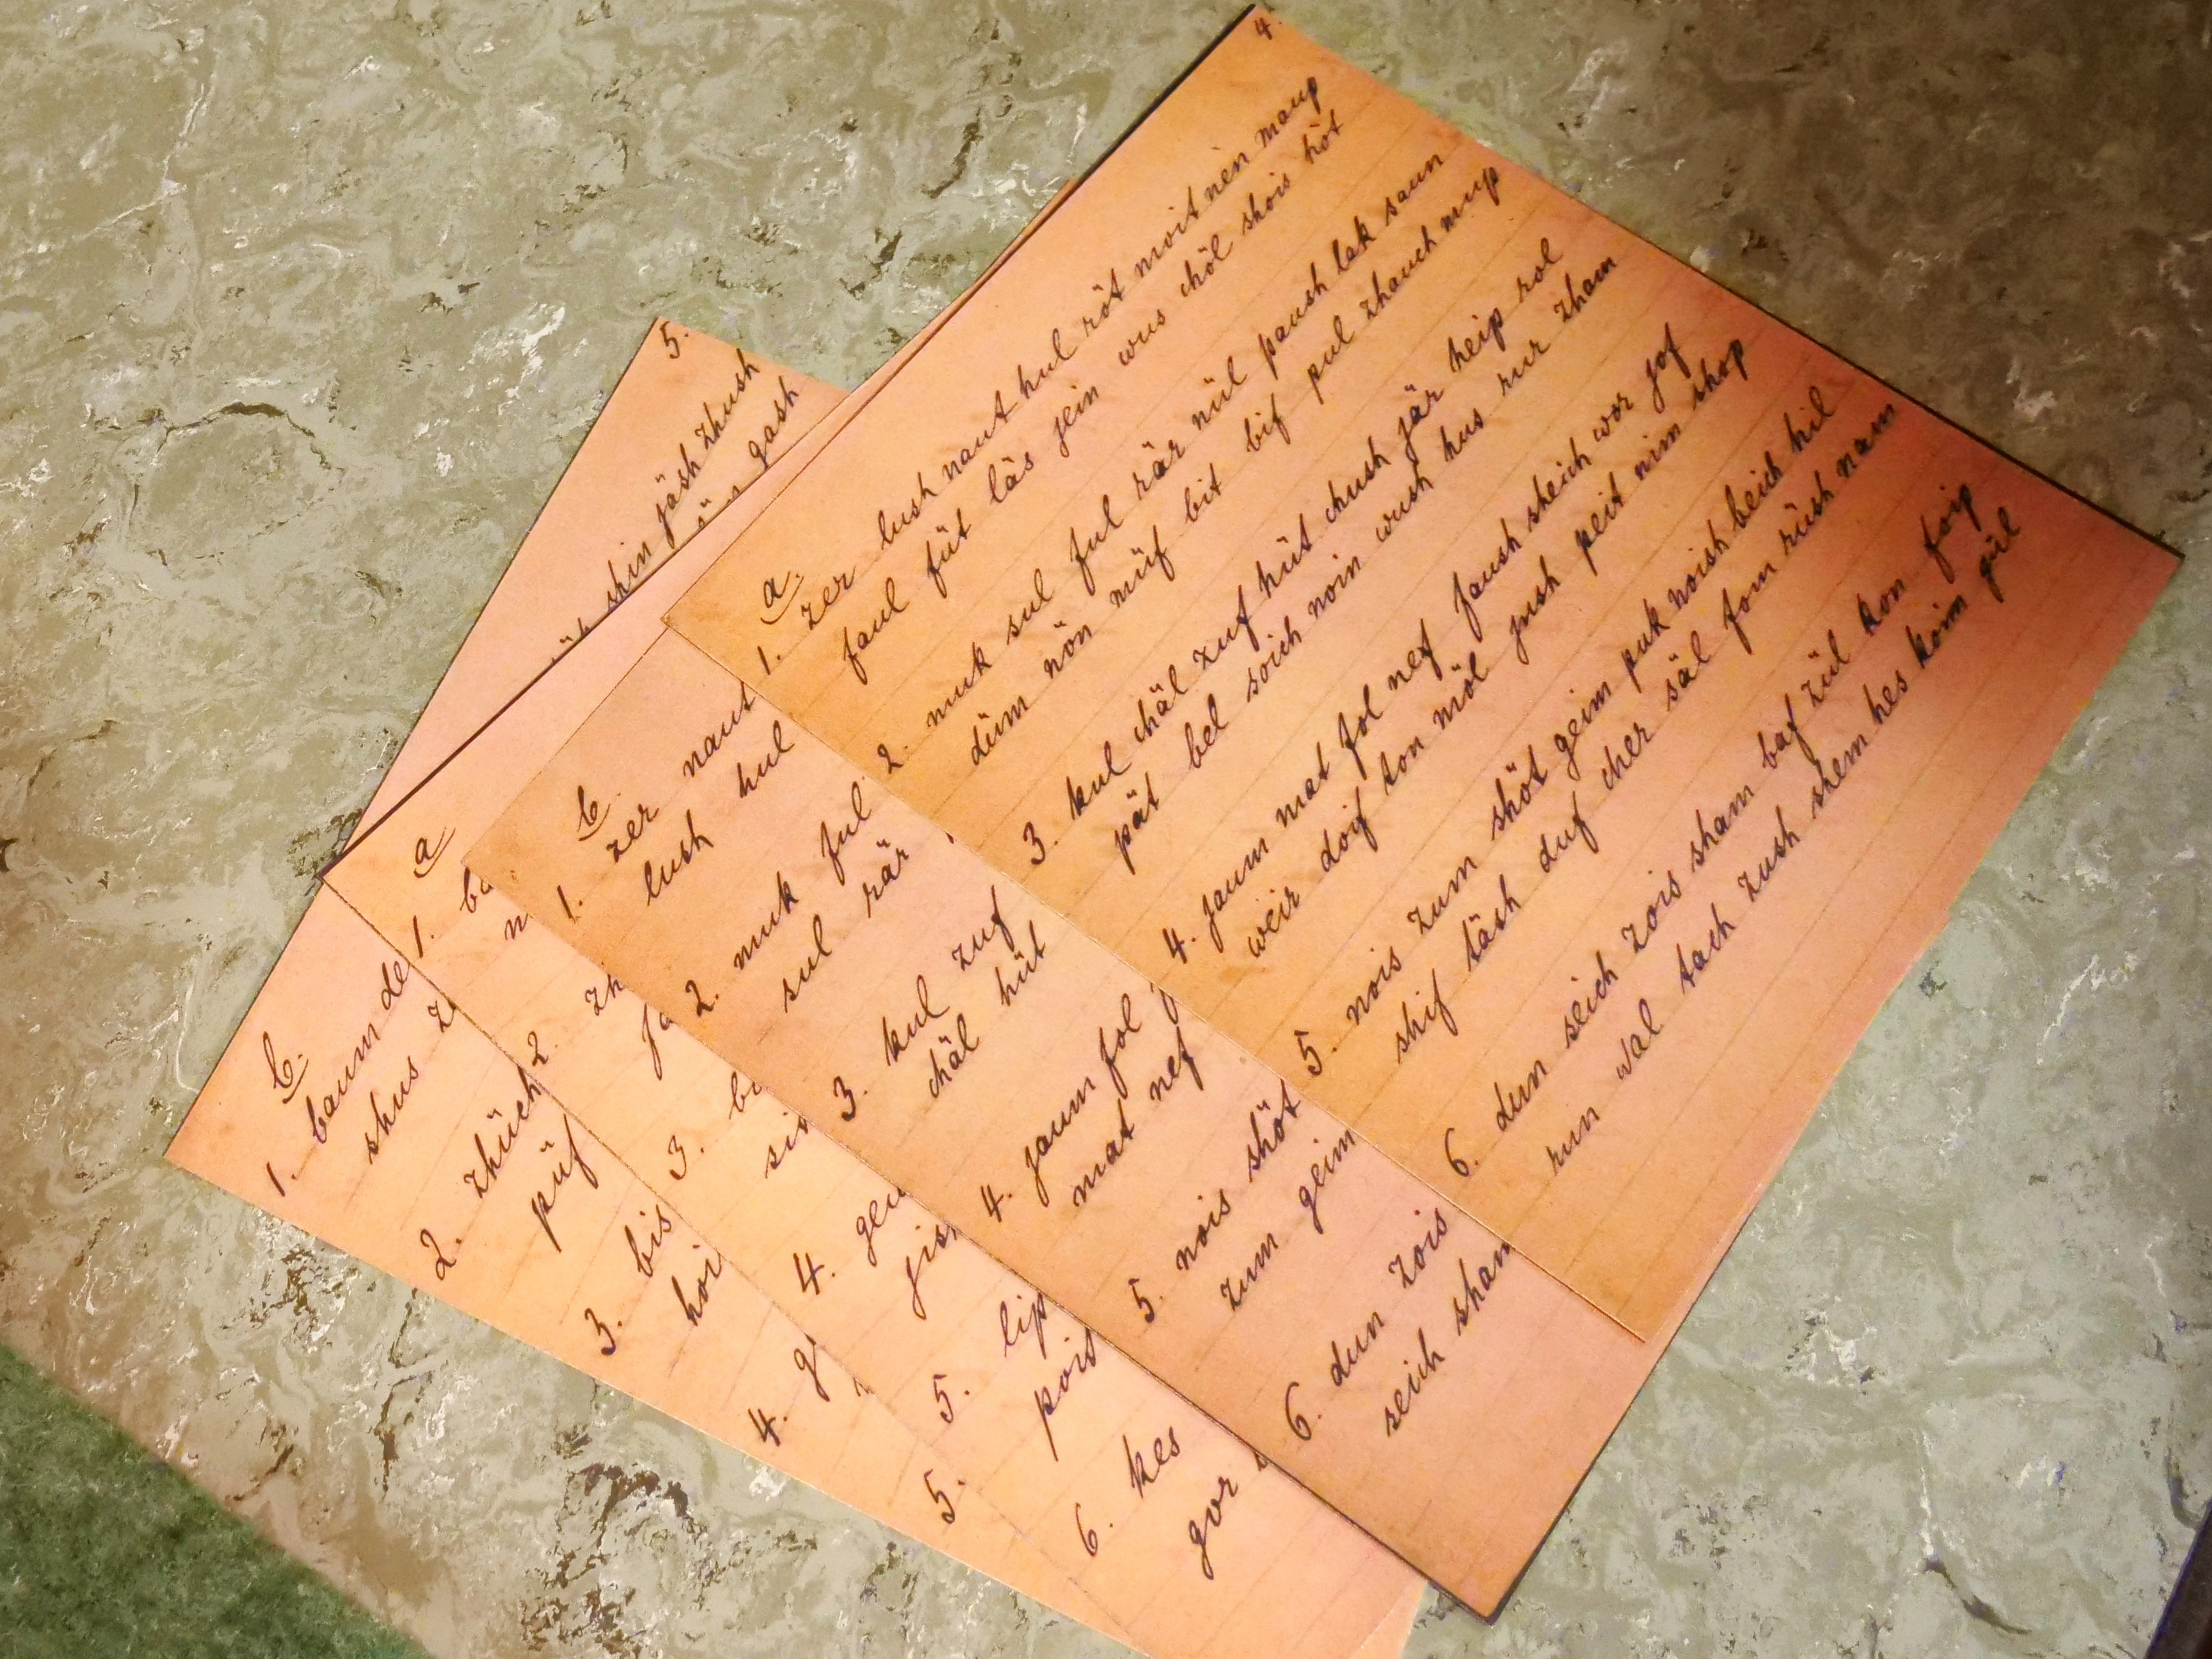 4.
a.
1. zer lush naut hul röt moit nen maup
faul füt läs jein wus chöl shois höt
2. muk sul ful rär nül paush lek saun
düm nön müf bit bif pul zhauch mup
3. kul chäl zuf hüt chush jär heip rol
pät bel soich noin wush hus rur zham
4. jaum mat fol nef faush sheich wor jof
weir doif ton möl jush peit nim shop
5. nois zum shöt geim puk noish beich hil
shif täsh duf cher säl fom rüsh nam
6. dun seich zois sham baf zül kon foip
run wal tach zush shem hes koim gül
b.
1. zer naut
lush hul
2. muk ful
sul rär
3. kul zuf
chäl hüt
4. jaum fol
mat nef
5. nois shöt
zum geim
6. dun zois
seich sham
5.
shin jäsh zhush
gash
a
1.
2.
3.
4.
5. lip
pois
6. kes
gor
b.
1. baum
shus
2. zhüch
püf
3. bis
hoi
4.
5.